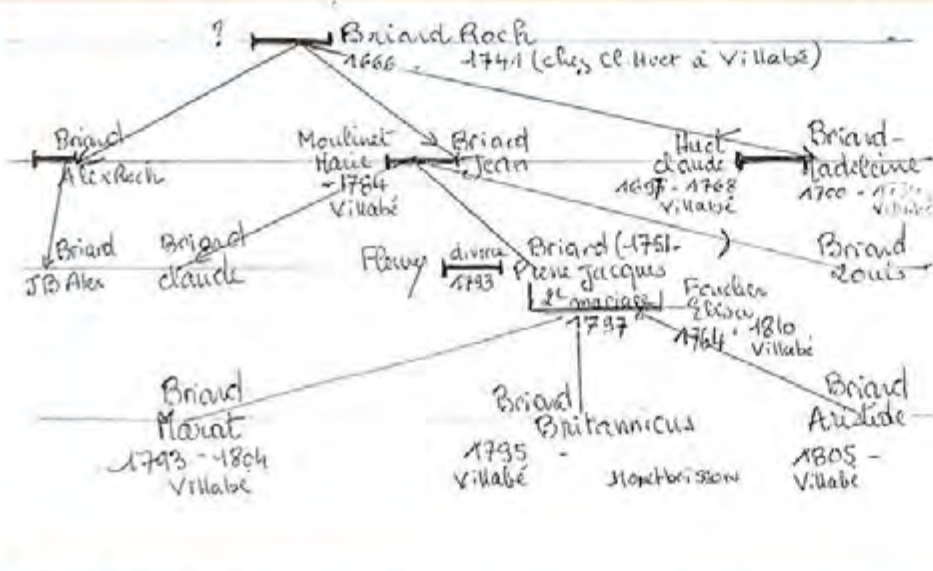 ? Briard Roch
1666 - 1741 (chez Cl. Huet à Villabé)
Briard
Alex Roch
Moulinet
Marie
- 1784
Villabé
Briard
Jean
Huet
Claude
1697 - 1768
Villabé
Briard-
Madeleine
1700 -
Villabé
Briard
JB Alex
Briard
Claude
Fleury
divorce
1793
Briard (-1751-
Pierre Jacques
2e mariage
1797
Elisa
1764 - 1810
Villabé
Briard
Louis
Briard
Marat
1793 - 1804
Villabé
Briard
Britannicus
1795 -
Villabé
Montbrisson
Briard
Aristide
1805 -
Villabé